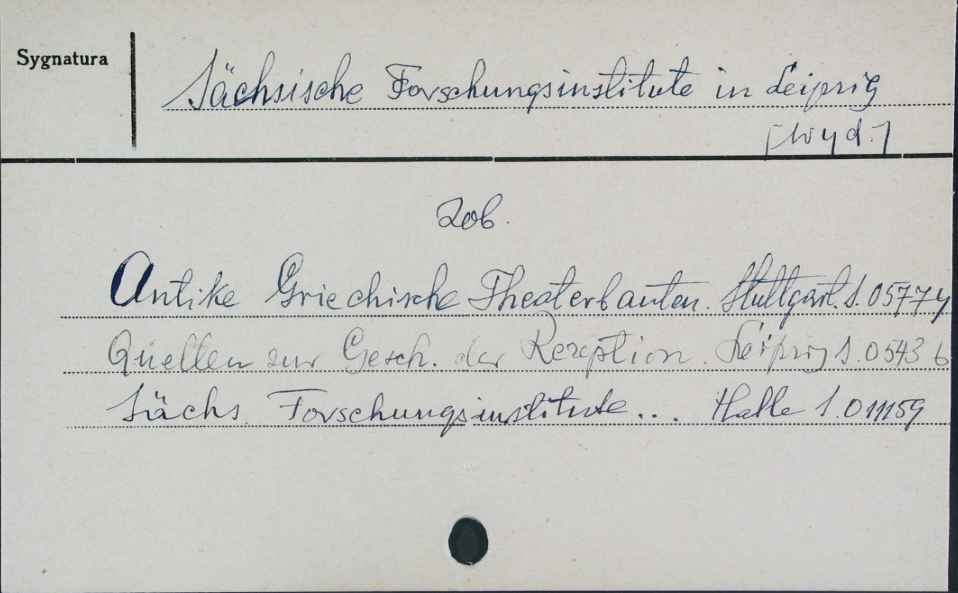 Sygnatura
Sächsische Forschungsinstitute in Leipzig
[wyd.]
Zob.
Antike Griechische Theaterbauten. Stuttgart. S. 05774
Quellen zur Gesch. der Rezeption. Leipzig S. 0543 b
Sächs. Forschungsinstitute... Halle S. 011159